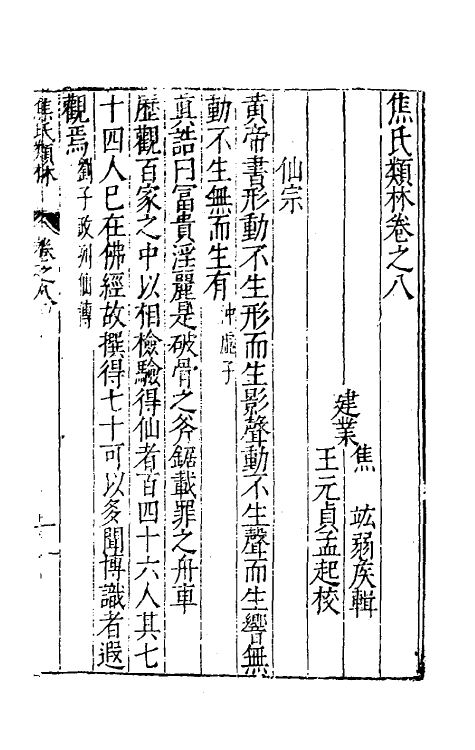 焦氏類林卷之八
建業
焦　竑弱侯輯
王元貞孟起校
仙宗
黃帝書形動不生形而生影聲動不生聲而生響無
動不生無而生有冲虛子
真誥曰冨貴淫麗是破骨之斧鋸載罪之舟車
歷觀百家之中以相檢驗得仙者百四十六人其七
十四人已在佛經故撰得七十可以多聞博識者遐
觀焉劉子政列仙傳
焦氏類林
卷之八